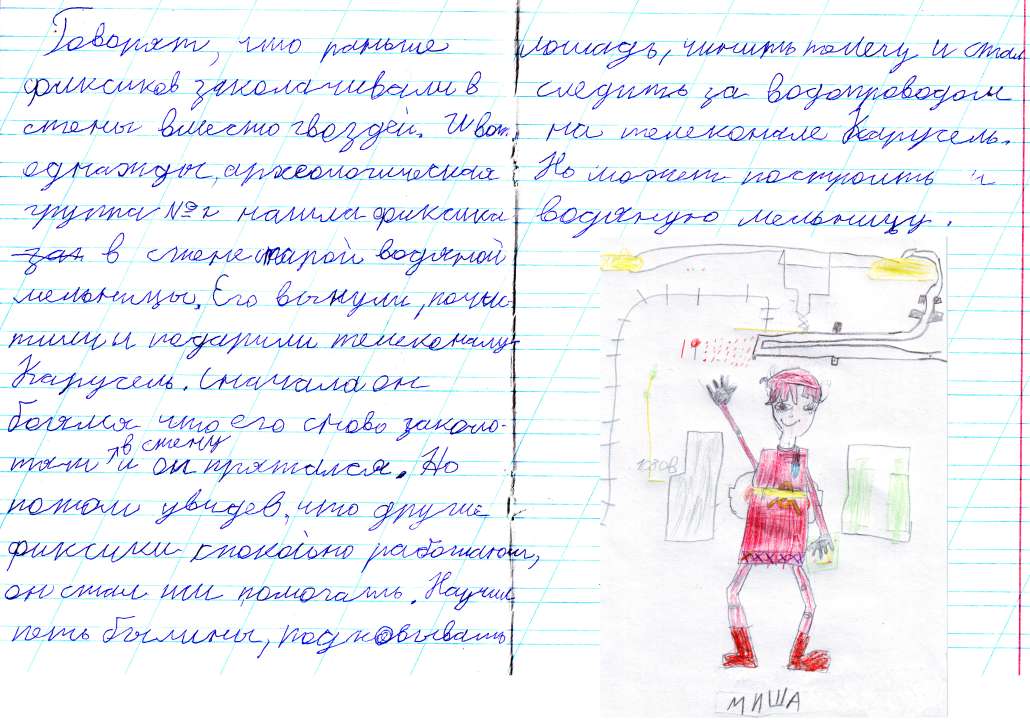 Говорят, что раньше
фиксиков заколачивали в
стены вместо гвоздей. И вот
однажды, археологическая
группа №2 нашла фиксика
зат в стене старой водяной
мельницы. Его вынули, почис-
тили и подарили телеканалу
Карусель. Сначала он
боялся что его снова заколо-
тят в стену и он прятался. Но
потом увидев, что другие
фиксики спокойно работают,
он стал им помогать. Научил
петь былины, подковывать
лошадь, чинить телегу и стал
следить за водопроводом
на телеканале Карусель.
Но может построить и
водяную мельницу.
МИША